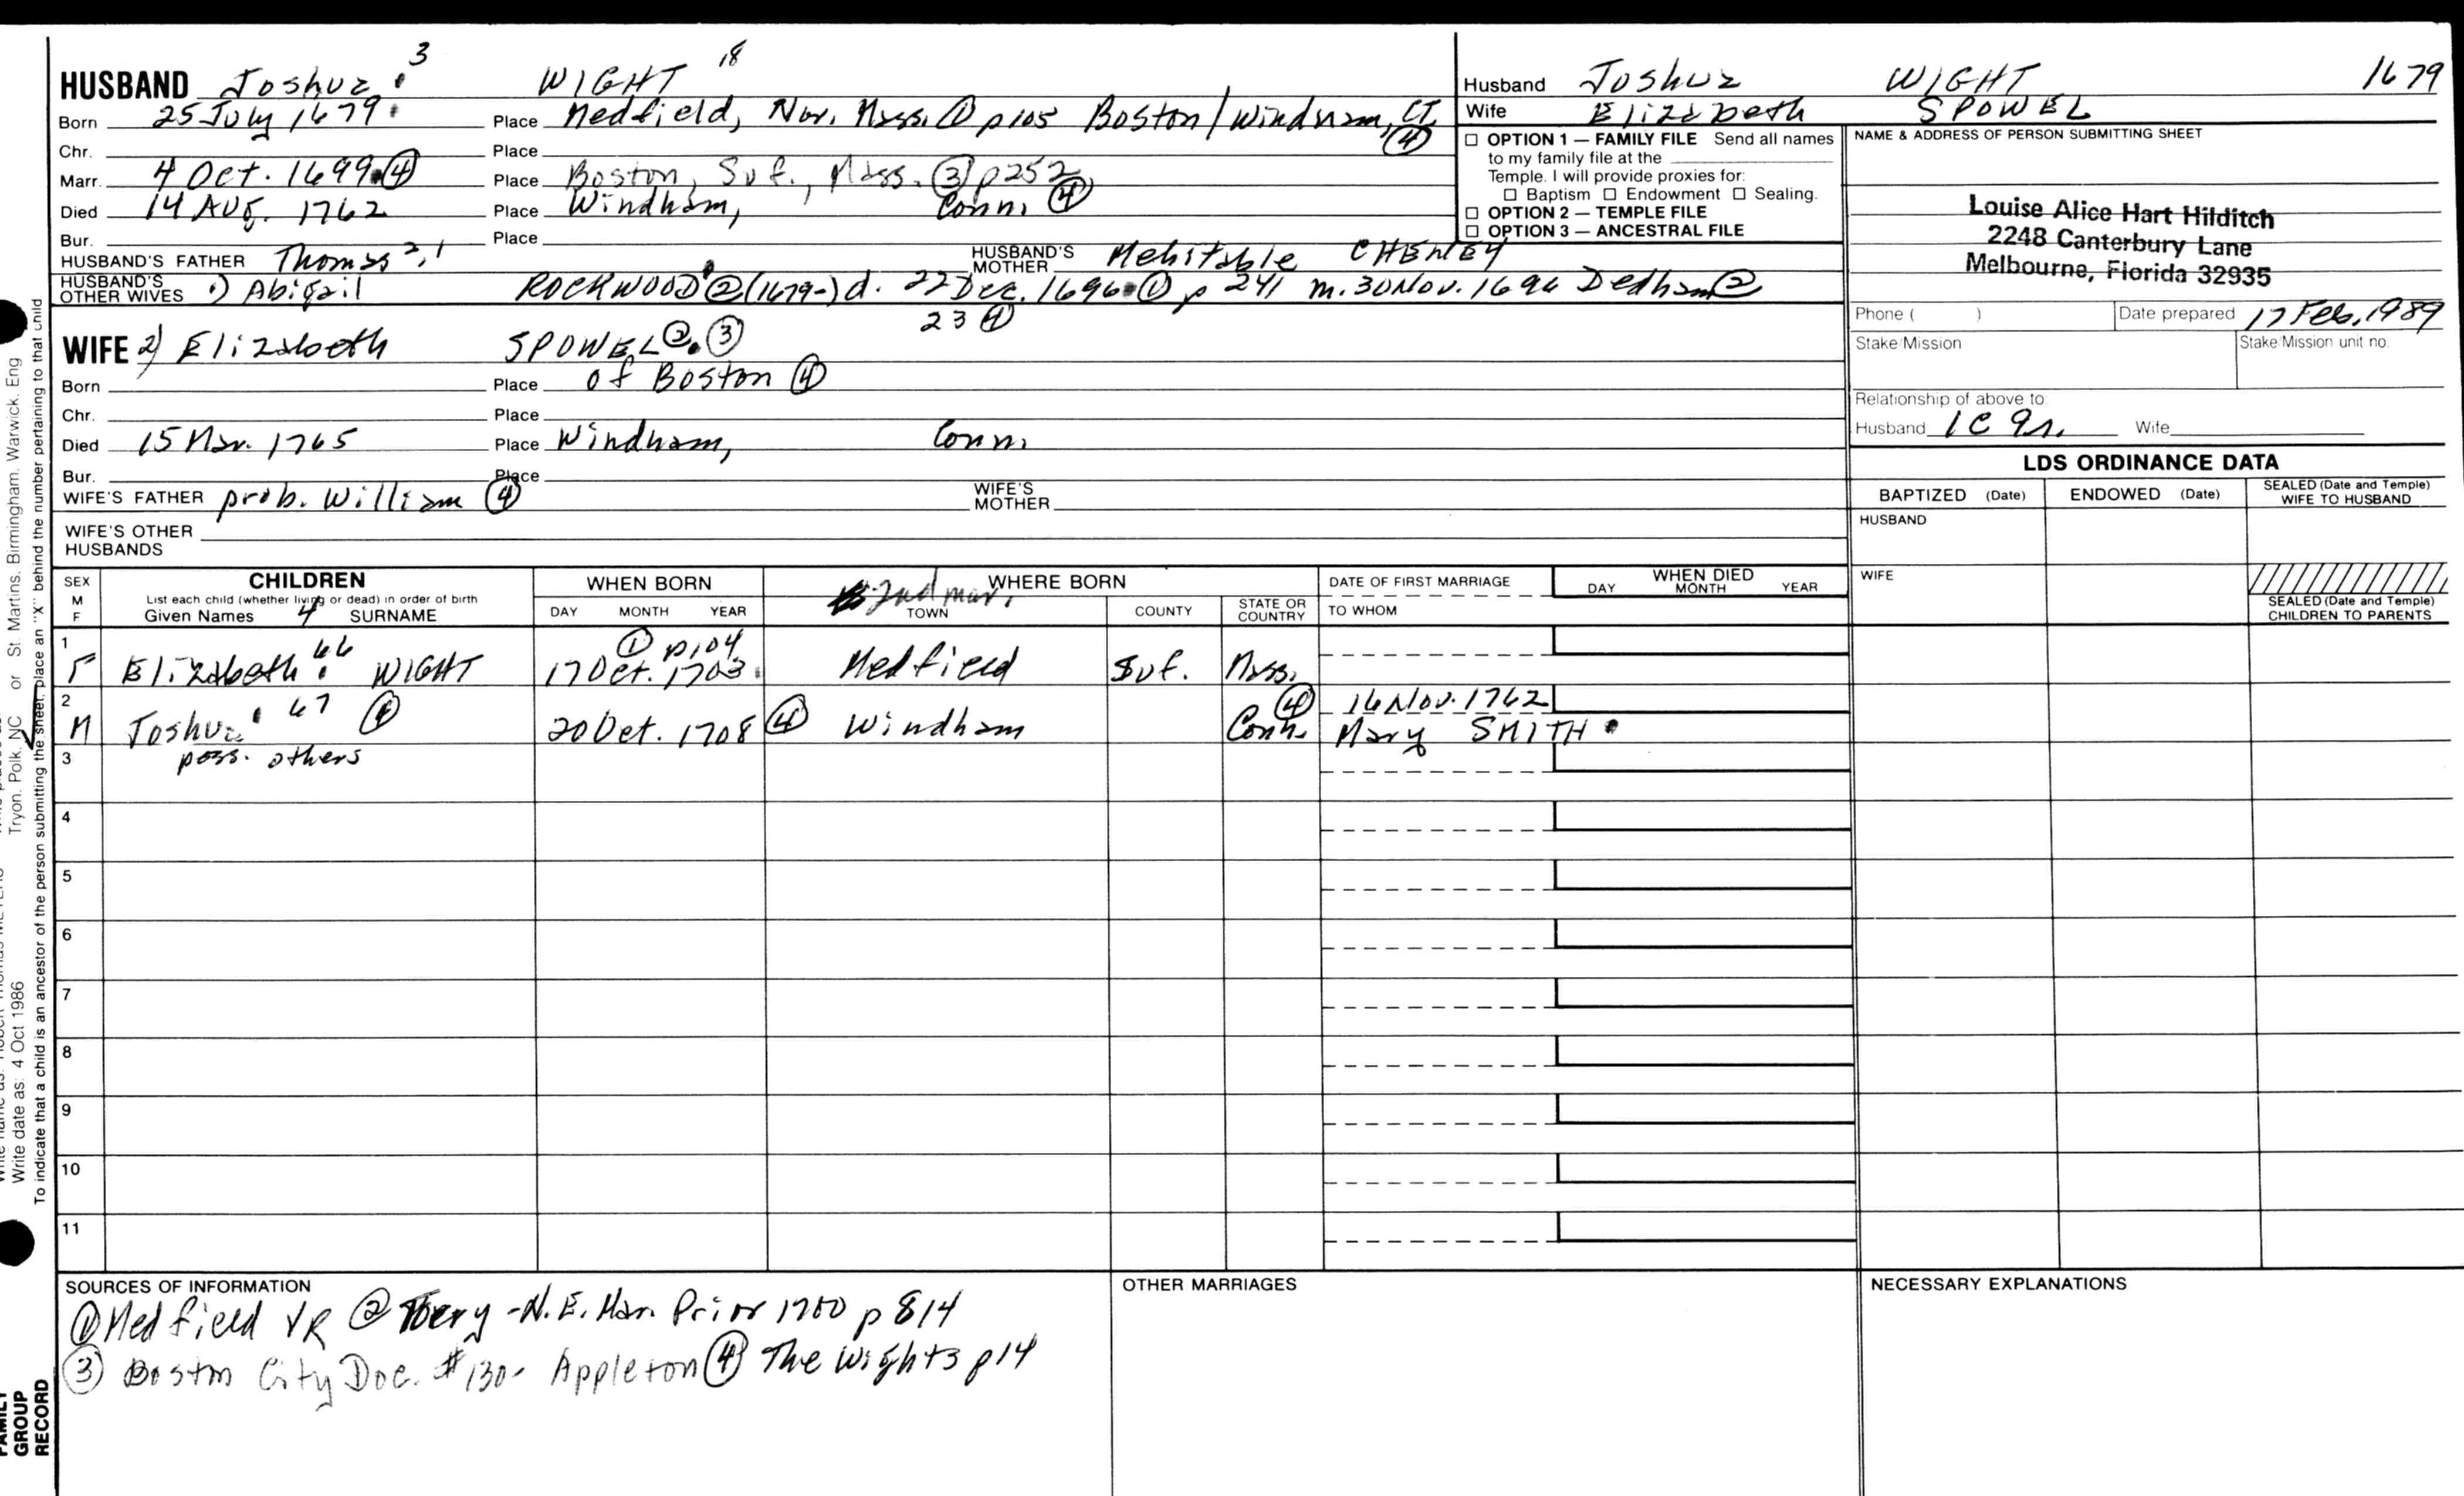 HUSBAND Joshua 3 WIGHT 18
Born 25 July 1679 Place Medfield, Nor. Mass. ① p105 Boston/Windham, CT. ④
Chr. Place
Marr. 4 Oct. 1699 ④ Place Boston, Suf., Mass. ③ p252 ④
Died 14 Aug. 1762 Place Windham, Conn. ④
Bur. Place
HUSBAND'S FATHER Thomas 2,1 HUSBAND'S MOTHER Mehitable CHENEY
HUSBAND'S OTHER WIVES 1) Abigail ROCKWOOD ② (1679-) d. 22 Dec. 1696 ① p 241 m. 30 Nov. 1696 Dedham ②
23 ④
WIFE 2) Elizabeth SPOWEL ②. ③
Born Place of Boston ④
Chr. Place
Died 15 Mar. 1765 Place Windham, Conn.
Bur. Place
WIFE'S FATHER prob. William ④ WIFE'S MOTHER
WIFE'S OTHER HUSBANDS
Husband Joshua WIGHT 1679
Wife Elizabeth SPOWEL
☐ OPTION 1 — FAMILY FILE Send all names
to my family file at the
Temple. I will provide proxies for:
☐ Baptism ☐ Endowment ☐ Sealing.
☐ OPTION 2 — TEMPLE FILE
☐ OPTION 3 — ANCESTRAL FILE
NAME & ADDRESS OF PERSON SUBMITTING SHEET
Louise Alice Hart Hilditch
2248 Canterbury Lane
Melbourne, Florida 32935
Phone ( ) Date prepared 17 Feb. 1989
Stake/Mission Stake/Mission unit no.
Relationship of above to:
Husband 1C 9r. Wife
LDS ORDINANCE DATA
BAPTIZED (Date) ENDOWED (Date) SEALED (Date and Temple) WIFE TO HUSBAND
HUSBAND
WIFE
SEALED (Date and Temple) CHILDREN TO PARENTS
SEX M F
CHILDREN
List each child (whether living or dead) in order of birth
Given Names 4 SURNAME
WHEN BORN
DAY MONTH YEAR
2nd mar.
WHERE BORN
TOWN COUNTY STATE OR COUNTRY
DATE OF FIRST MARRIAGE
TO WHOM
WHEN DIED
DAY MONTH YEAR
1 F Elizabeth 66 WIGHT ① p104 17 Oct. 1703 Medfield Suf. Mass.
2 M Joshua 67 ④ 20 Oct. 1708 ④ Windham Conn. ④ 16 Nov. 1762 Mary SMITH
3 poss. others
4
5
6
7
8
9
10
11
SOURCES OF INFORMATION
① Medfield VR ② Torrey - N.E. Mar. Prior 1700 p 814
③ Boston City Doc. #130- Appleton ④ The Wights p14
OTHER MARRIAGES
NECESSARY EXPLANATIONS
St. Martins, Birmingham, Warwick, Eng
or Tryon, Polk, NC
Write date as: 4 Oct 1986
To indicate that a child is an ancestor of the person submitting the sheet, place an "X" behind the number pertaining to that child
FAMILY
GROUP
RECORD